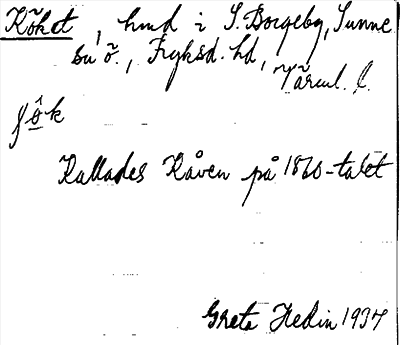 Köket, hmd i S. Borgeby, Sunne
su ö., Fryksd. hd,
Värml. l.
çô̱k
Kallades Kåven på 1860-talet
Greta Hedin 1937